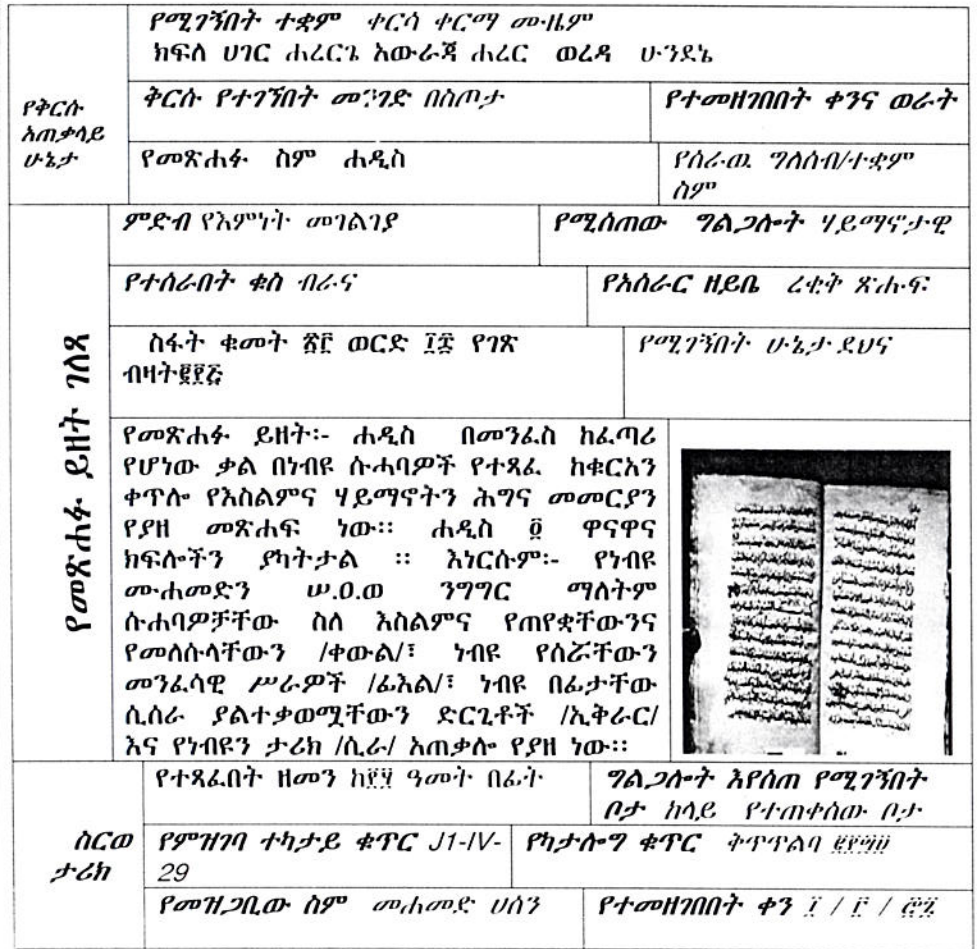 የሚገኝበት ተቋም ቀርሳ ቀርማ ሙዜም
ክፍለ ሀገር ሐረርጌ አውራጃ ሐረር ወረዳ ሁንደኔ
የቅርሱ
አጠቃላይ
ሁኔታ
ቅርሱ የተገኘበት መንገድ በስጦታ
የተመዘገበበት ቀንና ወራት
የመጽሐፉ ስም ሐዲስ
የሰራዉ ግለሰብ/ተቋም
ስም
የመጽሐፉ ይዘት ገለጻ
ምድብ የእምነት መገልገያ
የሚሰጠው ግልጋሎት ሃይማኖታዊ
የተሰራበት ቁስ ብራና
የአሰራር ዘይቤ ረቂቅ ጽሑፍ
ስፋት ቁመት ወርድ የገጽ
ብዛት
የሚገኝበት ሁኔታ ደህና
የመጽሐፉ ይዘት፡- ሐዲስ በመንፈስ ከፈጣሪ
የሆነው ቃል በነብዩ ሱሐባዎች የተጻፈ ከቁርአን
ቀጥሎ የእስልምና ሃይማኖትን ሕግና መመርያን
የያዘ መጽሐፍ ነው። ሐዲስ ፬ ዋናዋና
ክፍሎችን ያካትታል ። እነርሱም፡- የነብዩ
ሙሐመድን ሠ.ዐ.ወ ንግግር ማለትም
ሱሐባዎቻቸው ስለ እስልምና የጠየቋቸውንና
የመለሱላቸውን /ቀውል/፣ ነብዩ የሰሯቸውን
መንፈሳዊ ሥራዎች /ፊእል/፣ ነብዩ በፊታቸው
ሲሰራ ያልተቃወሟቸውን ድርጊቶች /ኢቅራር/
እና የነብዩን ታሪክ /ሲራ/ አጠቃሎ የያዘ ነው።
የተጻፈበት ዘመን ዓመት በፊት
ግልጋሎት እየሰጠ የሚገኝበት
ቦታ ከላይ የተጠቀሰው ቦታ
ስርወ
ታሪክ
የምዝገባ ተካታይ ቁጥር J1-IV-
29
የካታሎግ ቁጥር ቅጥጥልባ
የመዝጋቢው ስም መሐመድ ሀሰን
የተመዘገበበት ቀን